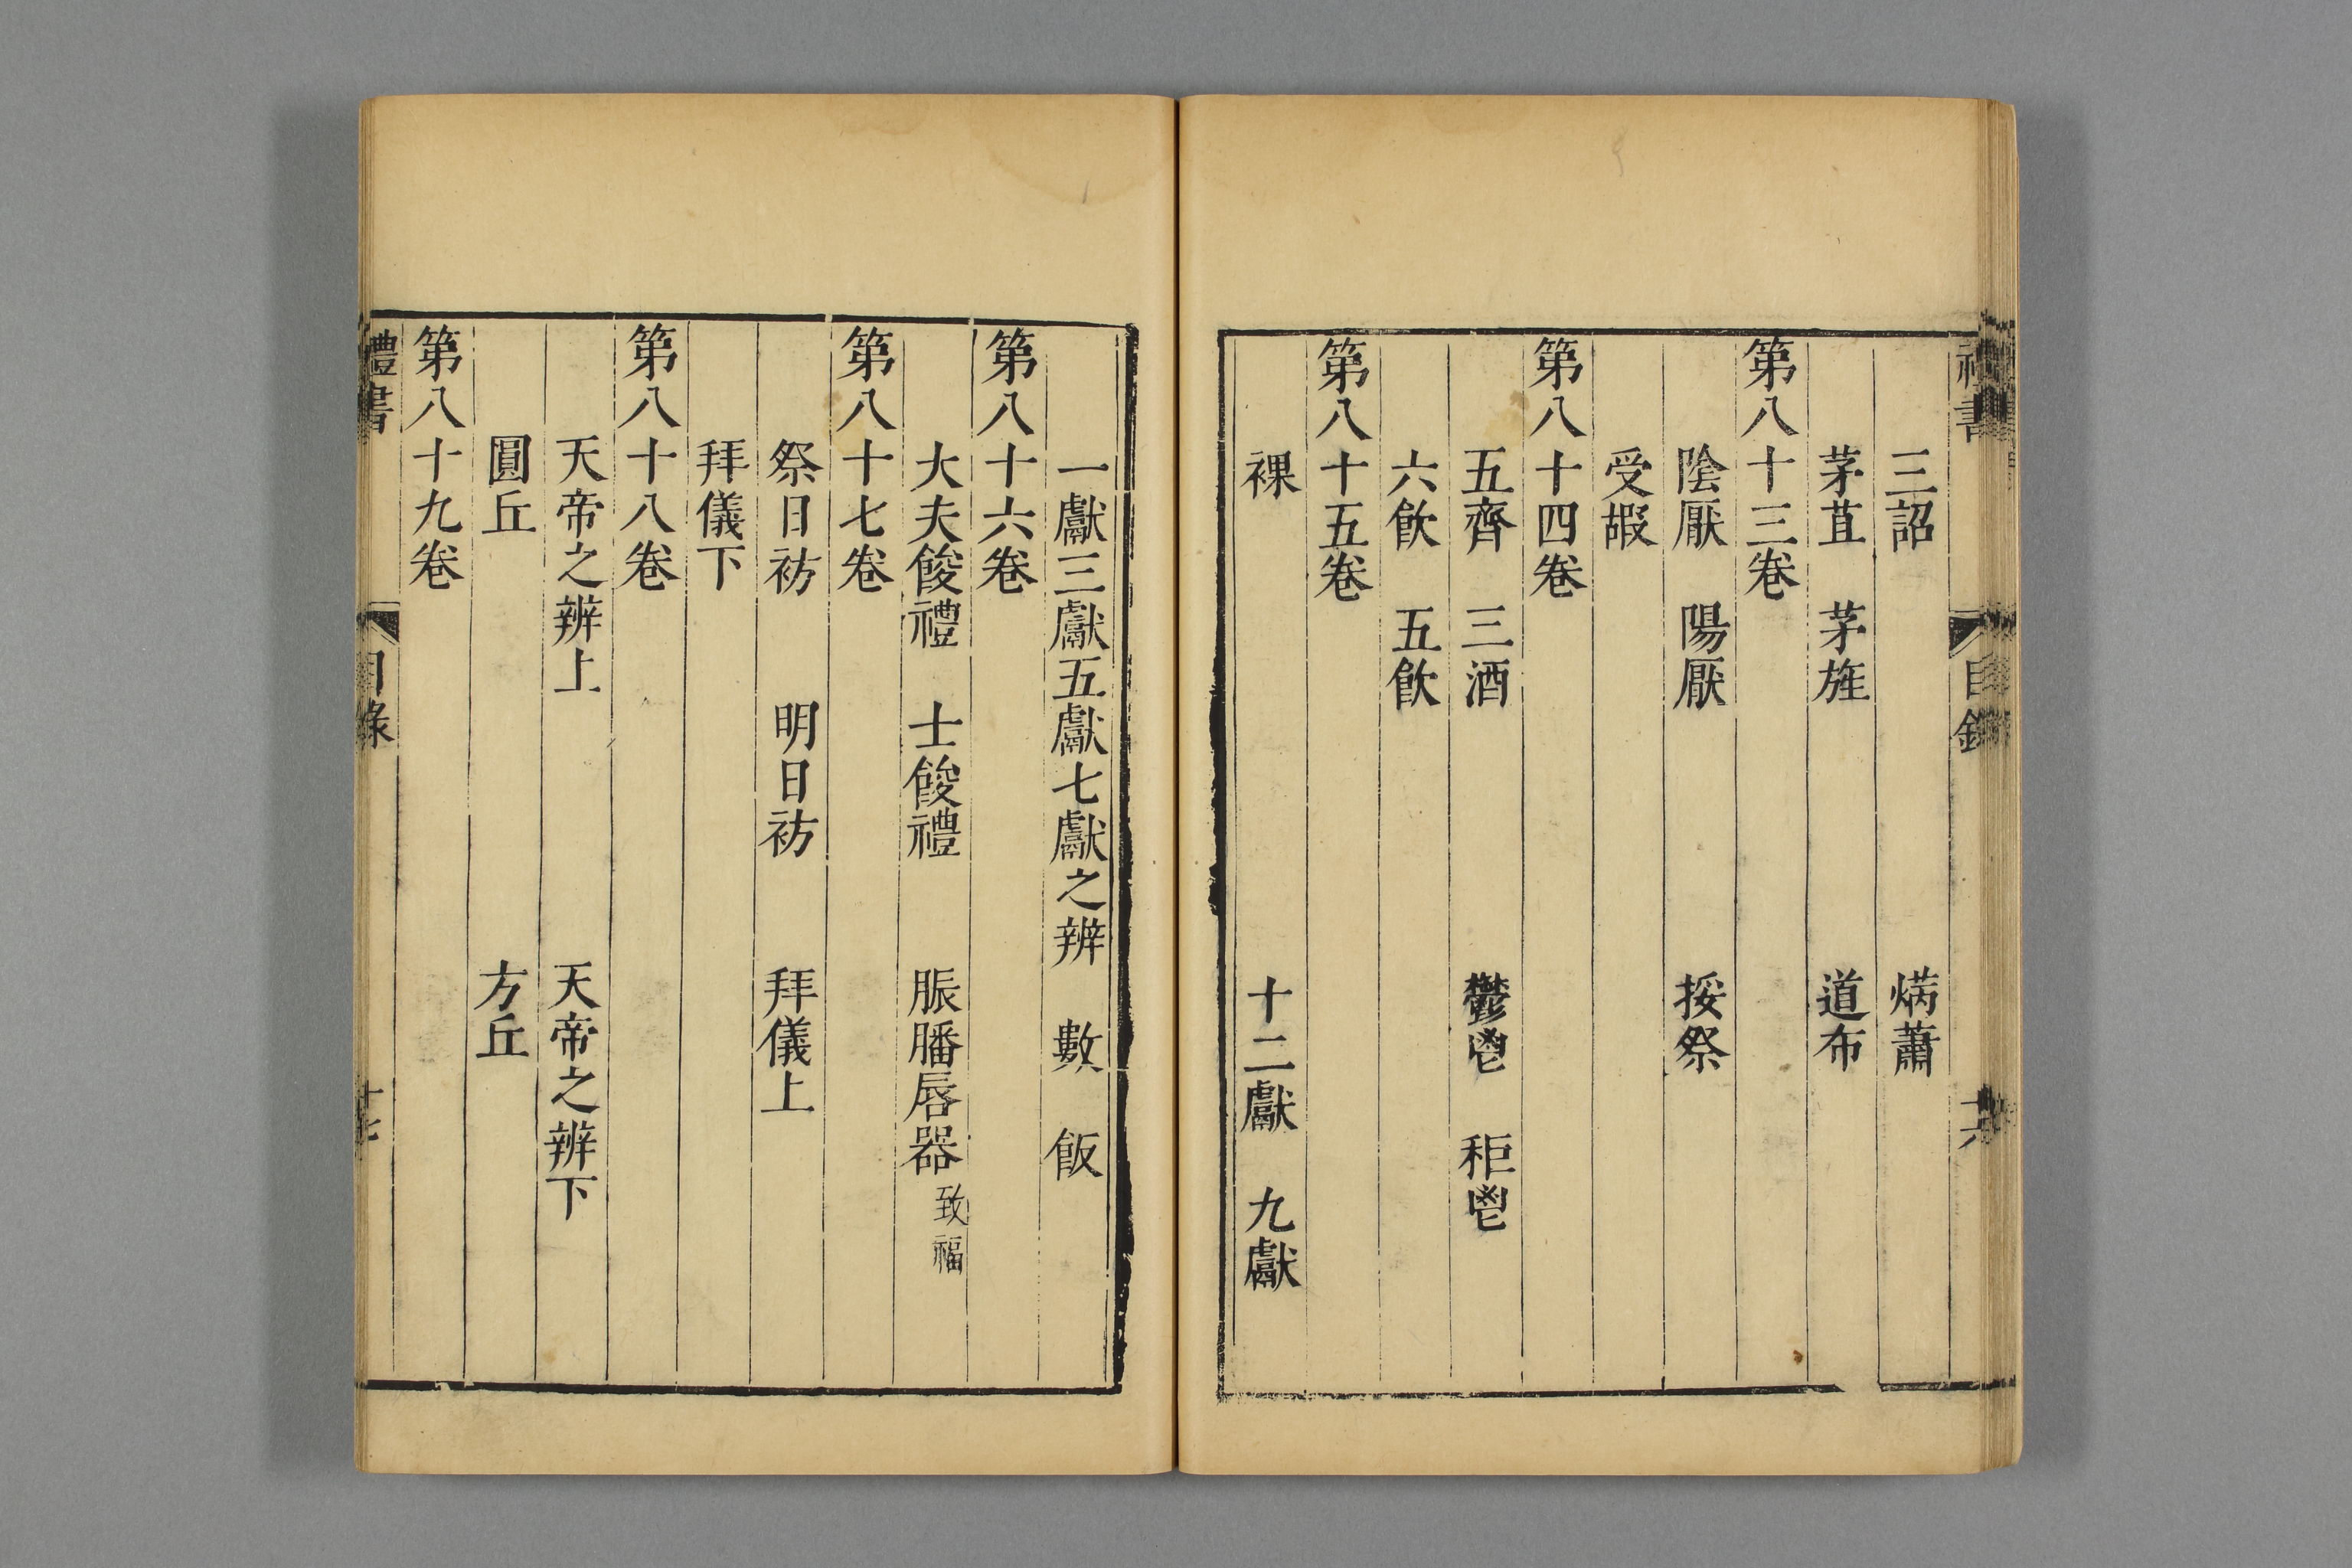 禮書 目錄 十六
三詔 焫蕭
茅苴 茅旌 道布
第八十三卷
陰厭 陽厭 挼祭
受嘏
第八十四卷
五齊 三酒 鬱鬯 秬鬯
六飲 五飲
第八十五卷
祼 十二獻 九獻
一獻三獻五獻七獻之辨 數飯
第八十六卷
大夫餕禮 士餕禮 脤膰脣器 致福
第八十七卷
祭日祊 明日祊 拜儀上
拜儀下
第八十八卷
天帝之辨上 天帝之辨下
圓丘 方丘
第八十九卷
禮書 目錄 十七